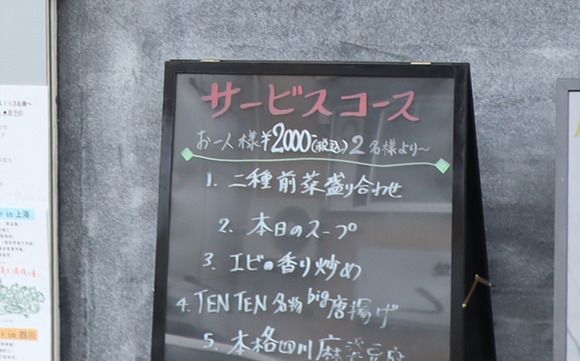 サービスコース
お一人様¥2000(税込)2名様より〜
1. 二種前菜盛り合わせ
2. 本日のスープ
3. エビの香り炒め
4. TEN TEN 名物 big 唐揚げ
5. 本格四川麻婆豆腐
in 上海
in 四川